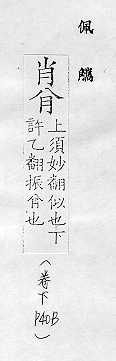 佩觿
肖䏌
上須妙翻似也下
許乙翻振䏌也
(卷下 P40B)